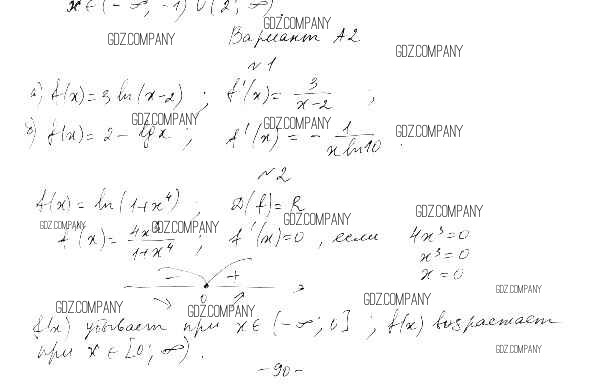 x ∈ (-∞; -1) ∪ (2; ∞)
GDZ.COMPANY
GDZ.COMPANY
Вариант А2
GDZ.COMPANY
№1
а) f(x) = 3 ln(x-2) ; f'(x) = 3/(x-2) ;
GDZ.COMPANY
GDZ.COMPANY
GDZ.COMPANY
б) f(x) = 2 - lg x ; f'(x) = - 1/(x ln 10) .
№2
f(x) = ln(1+x⁴) ; D(f) = R
GDZ.COMPANY
GDZ.COMPANY
GDZ.COMPANY
GDZ.COMPANY
f'(x) = 4x³/(1+x⁴) ; f'(x) = 0 , если 4x³ = 0
x³ = 0
x = 0
- +
0
GDZ.COMPANY
GDZ.COMPANY
GDZ.COMPANY
GDZ.COMPANY
f(x) убывает при x ∈ (-∞; 0] ; f(x) возрастает
при x ∈ [0; ∞) .
GDZ.COMPANY
-90-